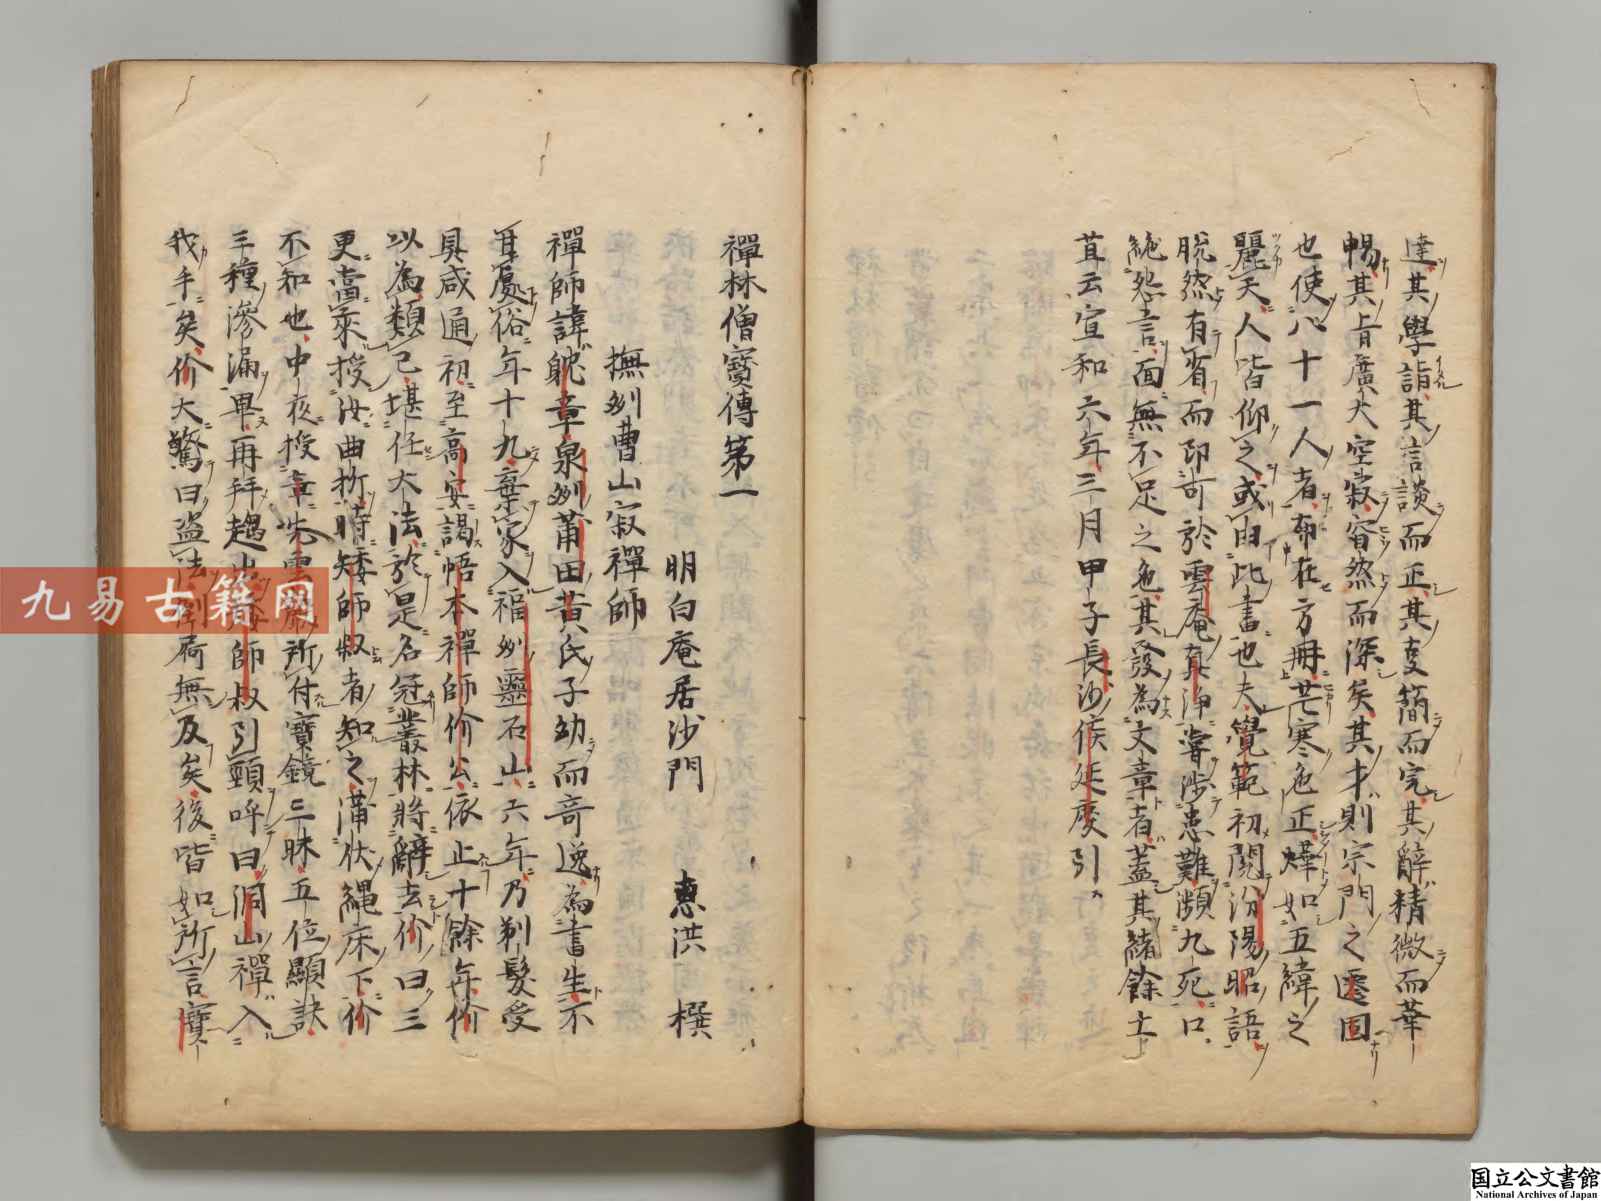 達其學詣其言談而正其事簡而完其辭精微而華
暢其旨廣大空寂窅然而深矣其才則宗門之遷固
也使八十一人者布在方冊芒寒色正燁如五緯之
麗天人皆仰之或由此書也夫覺範初閱汾陽昭語
脫然有省而印可於雲庵真淨嘗涉患難瀕九死口
絕怨言面無不足之色其發為文章者蓋其緒餘土
苴云宣和六年三月甲子長沙侯延慶引
禪林僧寶傳第一
明白庵居沙門 惠洪 撰
撫州曹山寂禪師
禪師諱耽章泉州莆田黃氏子幼而奇逸為書生不
甘處俗年十九棄家入福州靈石山六年乃剃髮受
具咸通初至高安謁悟本禪師价公依止十餘年价
以為類己堪任大法於是名冠叢林將辭去价曰三
更當來授汝曲折時矮師叔者知之蒲伏繩床下价
不知也中夜授章先雲巖所付寶鏡三昧五位顯訣
三種滲漏畢再拜趨出矮師叔引頸呼曰洞山禪入
我手矣价大驚曰盜法倒屙無及矣後皆如所言寶
九易古籍网
国立公文書館
National Archives of Japan